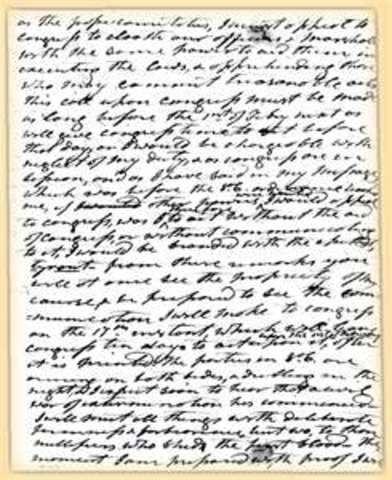 as the posse comitatus, I must appeal to
congress to cloathe our officers & marshall
with the same power to aid them in
executing the laws, & apprehending those
who may commit treasonable acts
this call upon congress must be made
as long before the 1rst of Feby next as
will give congress time to act before
that day, or I would be chargeable with
neglect of my duty, as congress are in
session, and as I have said in my message
which was before the So.
to congress, was I to act without the aid
of Congress, or without communicating
to it, I would be branded with the epithet
tyrant from these remarks you
will at once see the propriety of my
course, & be prepared to see the com
=munication I will make to congress
on the 17th instant, which will leave
congress ten days to act upon it, after
it is received. The parties in So. C. are
arming on both sides, & drilling in the
night, I expect soon to hear that a civil
war of extermination has commenced I
will meet all things with deliberate
firmness & forbearance, but wo, to those
nullifiers who shed the first blood. The
moment I am prepared with proof I will